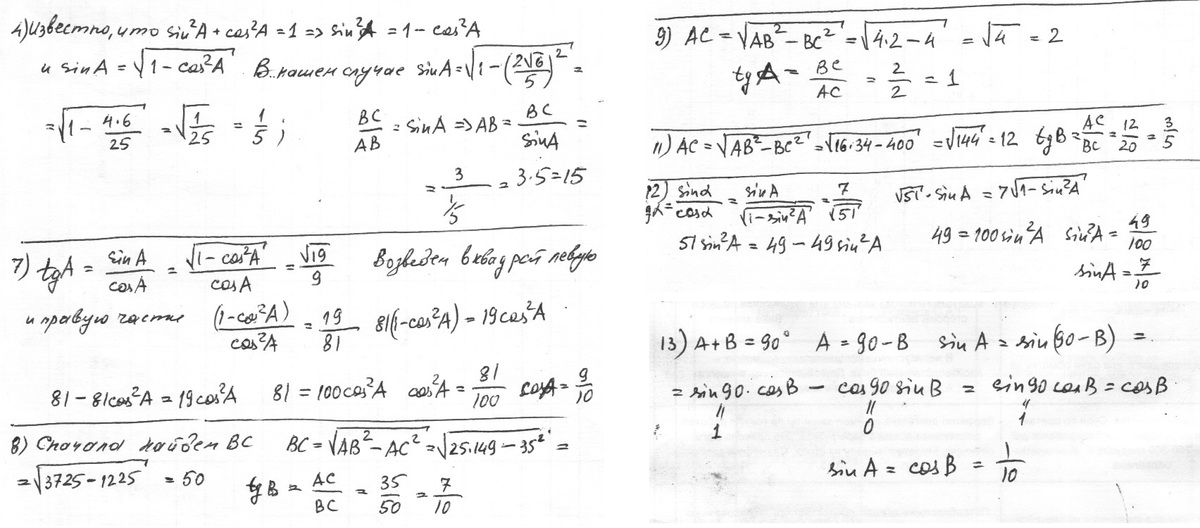 4) Известно, что sin²A + cos²A = 1 => sin²A = 1 - cos²A
и sinA = √(1 - cos²A) В нашем случае sinA = √(1 - (2√6/5)²) =
= √(1 - 4·6/25) = √(1/25) = 1/5; BC/AB = sinA => AB = BC/sinA =
= 3/(1/5) = 3·5 = 15
7) tgA = sinA/cosA = √(1 - cos²A)/cosA = √19/9 Возведем в квадрат левую
и правую части (1 - cos²A)/cos²A = 19/81 81(1 - cos²A) = 19cos²A
81 - 81cos²A = 19cos²A 81 = 100cos²A cos²A = 81/100 cosA = 9/10
8) Сначала найдем BC BC = √(AB² - AC²) = √(25·149 - 35²) =
= √(3725 - 1225) = 50 tgB = AC/BC = 35/50 = 7/10
9) AC = √(AB² - BC²) = √(4·2 - 4) = √4 = 2
tgA = BC/AC = 2/2 = 1
11) AC = √(AB² - BC²) = √(16·34 - 400) = √144 = 12 tgB = AC/BC = 12/20 = 3/5
12) tgα = sinα/cosα = sinA/√(1 - sin²A) = 7/√51 √51·sinA = 7√(1 - sin²A)
51sin²A = 49 - 49sin²A 49 = 100sin²A sin²A = 49/100
sinA = 7/10
13) A + B = 90° A = 90 - B sin A = sin(90 - B) =
= sin90·cosB - cos90 sinB = sin90 cosB = cosB
" " "
1 0 1
sin A = cosB = 1/10